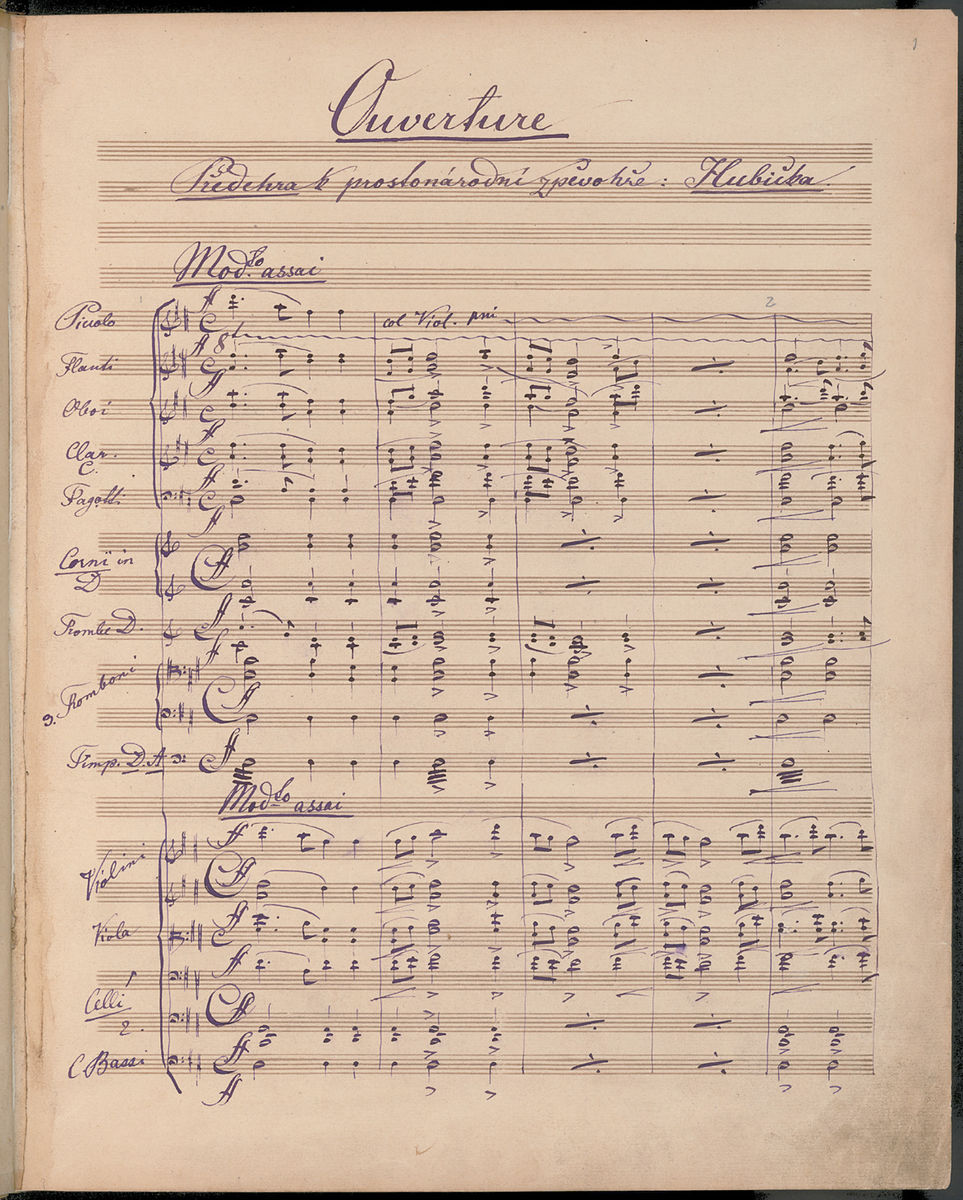 1
Ouverture
Předehra k prostonárodní zpěvohře: Hubička.
Mod.to assai
2
Picolo ff
col Viol. pmi
8
Flauti ff
Oboi ff
Clar. C. ff
Fagotti ff
Corni in D ff
Trombe D. ff
3. Tromboni ff
Timp. D. A ff
Mod.to assai
Violini ff
Viola ff
Celli 1
2.
C. Bassi ff